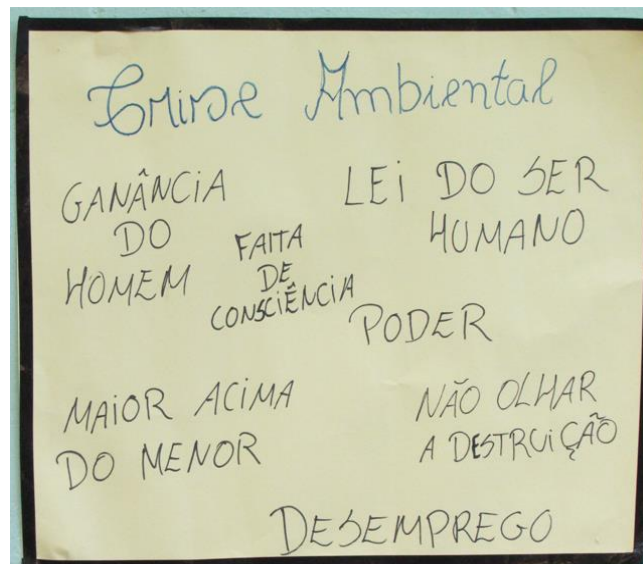 Crime Ambiental
GANÂNCIA
DO
HOMEM
FAITA
DE
CONSCIÊNCIA
LEI DO SER
HUMANO
PODER
MAIOR ACIMA
DO MENOR
NÃO OLHAR
A DESTRUIÇÃO
DESEMPREGO